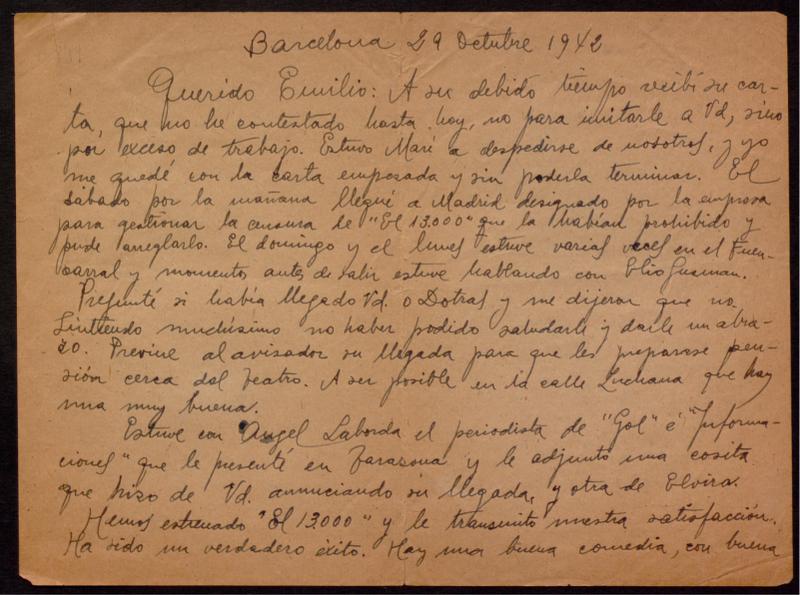 Barcelona 29 Octubre 1942
Querido Emilio: A su debido tiempo recibí su car-
ta, que no he contestado hasta hoy, no para imitarle a Vd, sino
por exceso de trabajo. Estuvo Maré a despedirse de nosotros, y yo
me quedé con la carta empezada y sin poderla terminar. El
sábado por la mañana llegué a Madrid designado por la empresa
para gestionar la censura de "El 13.000" que la habían prohibido y
pude arreglarlo. El domingo y el lunes estuve varias veces en el Fuen-
carral y momentos antes de salir estuve hablando con Elio Guzman.
Pregunté si había llegado Vd. o Dotras y me dijeron que no.
Sintiendo muchísimo no haber podido saludarle y darle un abra-
zo. Previne al avisador su llegada para que les preparase pen-
sión cerca del Teatro. A ser posible en la calle Luchana que hay
una muy buena.
Estuve con Angel Laborda el periodista de "Gol" é "Informa-
ciones" que le presenté en Tarazona y le adjunto una cosita
que hizo de Vd. anunciando su llegada, y otra de Elvira.
Hemos estrenado "El 13.000" y le transmito nuestra satisfacción.
Ha sido un verdadero éxito. Hay una buena comedia, con buena